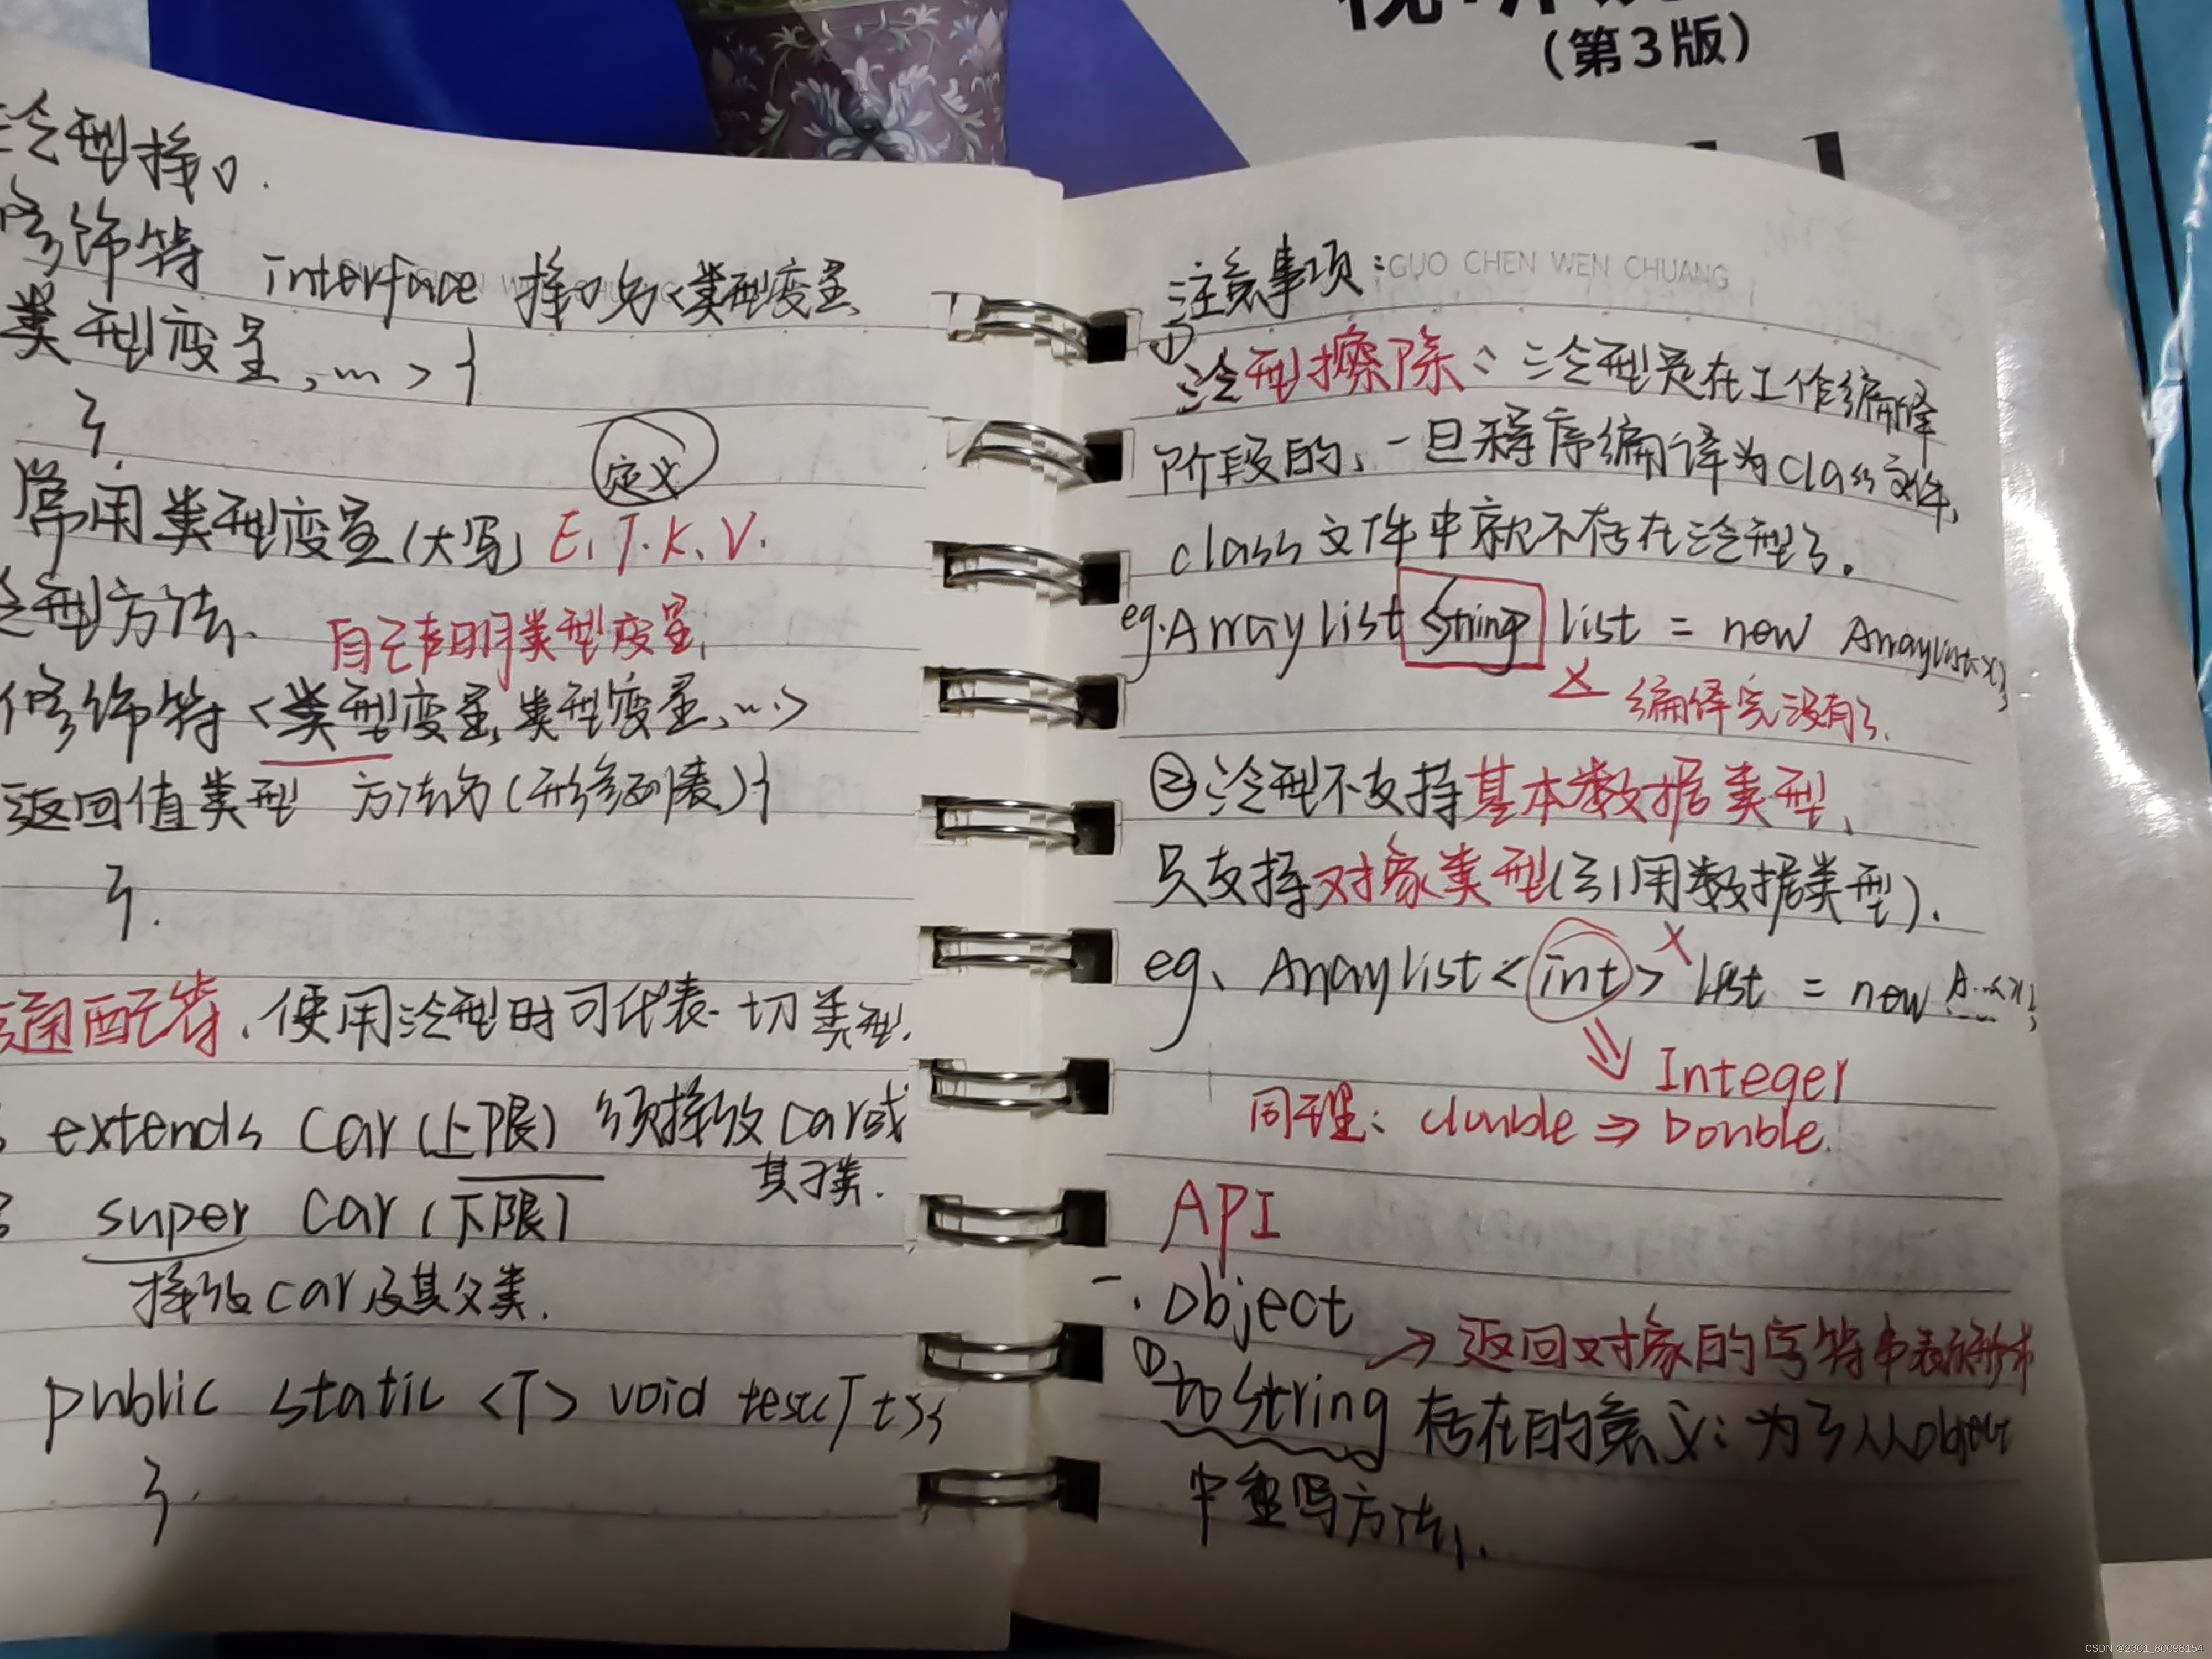 (第3版)
泛型接口.
修饰符 interface 接口名<类型变量,
类型变量,...>{
}.
定义
常用类型变量(大写) E、T、K、V.
泛型方法. 自己声明类型变量,
修饰符<类型变量,类型变量,...>
返回值类型 方法名(形参列表){
}.
通配符.使用泛型时可代表一切类型.
extends Car(上限) 须接收Car或
其子类.
super Car(下限)
接收Car及其父类.
public static <T> void test(T t){
}.
GUO CHEN WEN CHUANG
注意事项:
①
泛型擦除:泛型是在工作编译
阶段的,一旦程序编译为class文件,
class文件中就不存在泛型了。
eg.ArrayList<String> list = new ArrayList<>();
× 编译完没有了.
②泛型不支持基本数据类型,
只支持对象类型(引用数据类型).
eg、ArrayList<int>× list = new A...<>();
⇒ Integer
同理: double ⇒ Double.
API
一.Object
→返回对象的字符串表示形式
①toString 存在的意义:为了从Object
中重写方法.
CSDN @2301_80098154